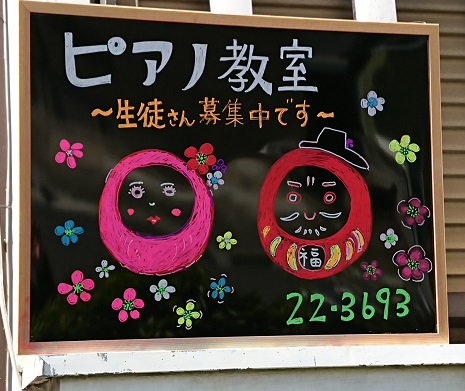 ピアノ教室
～生徒さん募集中です～
福
22-3693